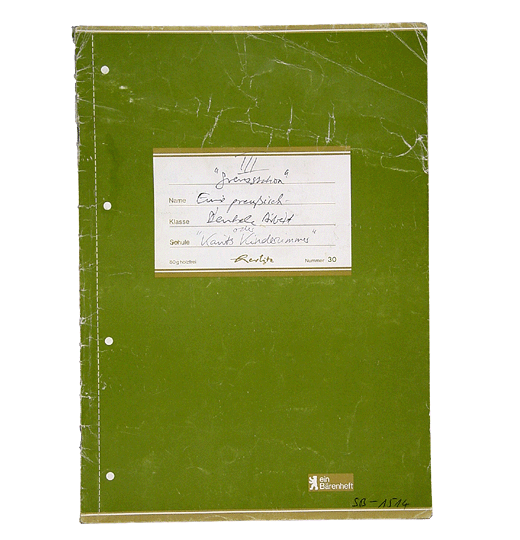 III
"Grenzstation"
Name Eine preußisch-
Klasse Dunkle Arbeit
oder
Schule "Kants Kinderzimmer"
80g holzfrei Nummer 30
ein
Bärenheft
SB-1514